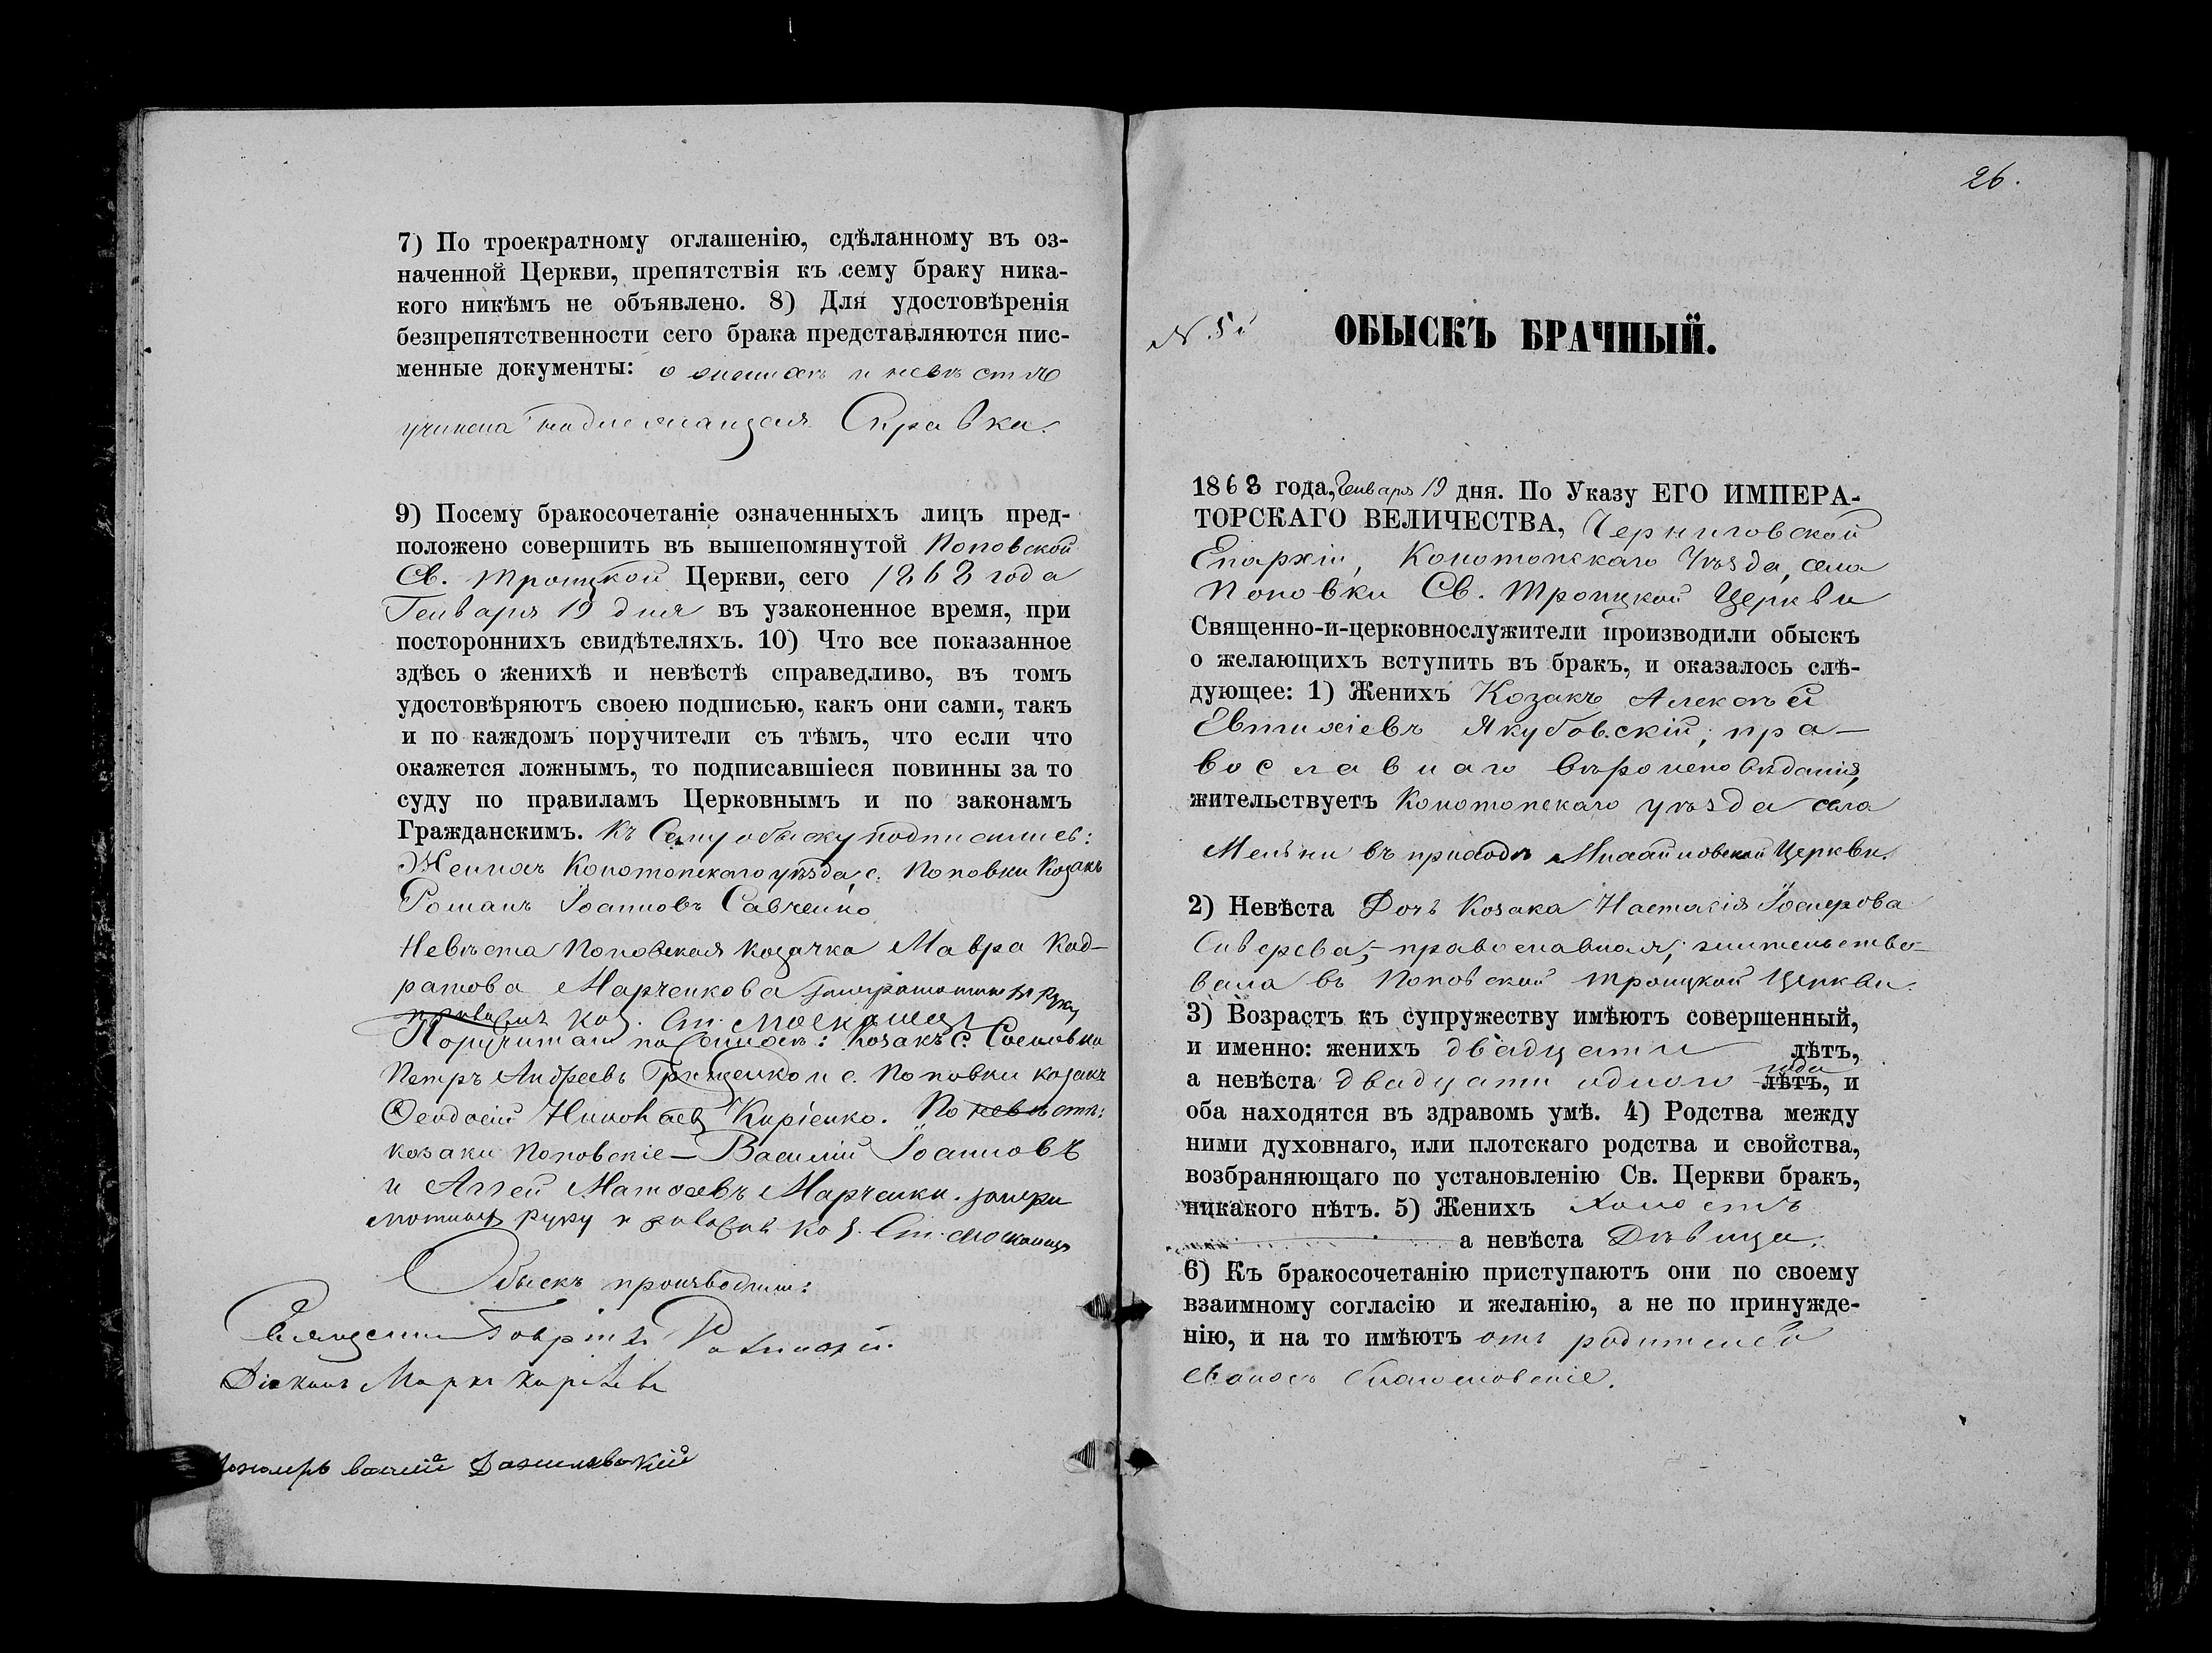 7) По троекратному оглашенію, сдѣланному въ оз-
наченной Церкви, препятствія къ сему браку ника-
кого никѣмъ не объявлено. 8) Для удостовѣренія
безпрепятственности сего брака представляются пис-
менные документы: о женихѣ и невѣстѣ
учинена надлежащая Справка.
9) Посему бракосочетаніе означенныхъ лицъ пред-
положено совершить въ вышепомянутой Поповской
Св. Троицкой Церкви, сего 1868 года
Генваря 19 дня въ узаконенное время, при
постороннихъ свидѣтеляхъ. 10) Что все показанное
здѣсь о женихѣ и невѣстѣ справедливо, въ томъ
удостовѣряютъ своею подписью, какъ они сами, такъ
и по каждомъ поручители съ тѣмъ, что если что
окажется ложнымъ, то подписавшіеся повинны за то
суду по правиламъ Церковнымъ и по законамъ
Гражданскимъ. Къ Сему обыску подписались:
Женихъ Конотопскаго уѣзда, с. Поповки Козакъ
Романъ Іоанновъ Савченко
Невѣста Поповская козачка Мавра Код-
ратова Марченкова
коз.
Поручители по женихѣ: Козакъ с.
Петръ Андреевъ Грищенко и с. Поповки козакъ
Ѳеодосій Киріенко. По невѣстѣ:
козаки Поповскіе — Василій Іоанновъ
и Аггей Матѳеевъ Марченки.
руку коз.
Обыскъ производили:
Священникъ Гавріилъ
Діаконъ Маркъ
Пономарь
26.
N 5.
ОБЫСКЪ БРАЧНЫЙ.
1868 года, Генваря 19 дня. По Указу ЕГО ИМПЕРА-
ТОРСКАГО ВЕЛИЧЕСТВА, Черниговской
Епархіи, Конотопскаго Уѣзда, села
Поповки Св. Троицкой Церкви
Священно-и-церковнослужители производили обыскъ
о желающихъ вступить въ бракъ, и оказалось слѣ-
дующее: 1) Женихъ Козакъ Алексѣй
Евтихіевъ Якубовскій, пра-
вославнаго вѣроисповѣданія,
жительствуетъ Конотопскаго уѣзда села
въ приходѣ Михайловской Церкви.
2) Невѣста Дочь Козака Настасія
Сиверева, — православная, жительство-
вала въ Поповской Троицкой Церкви.
3) Возрастъ къ супружеству имѣютъ совершенный,
и именно: женихъ двадцати лѣтъ,
а невѣста двадцати одного года лѣтъ, и
оба находятся въ здравомь умѣ. 4) Родства между
ними духовнаго, или плотскаго родства и свойства,
возбраняющаго по установленію Св. Церкви бракъ,
никакого нѣтъ. 5) Женихъ холостъ
а невѣста Дѣвица.
6) Къ бракосочетанію приступаютъ они по своему
взаимному согласію и желанію, а не по принужде-
нію, и на то имѣютъ отъ родителей
своихъ благословеніе.